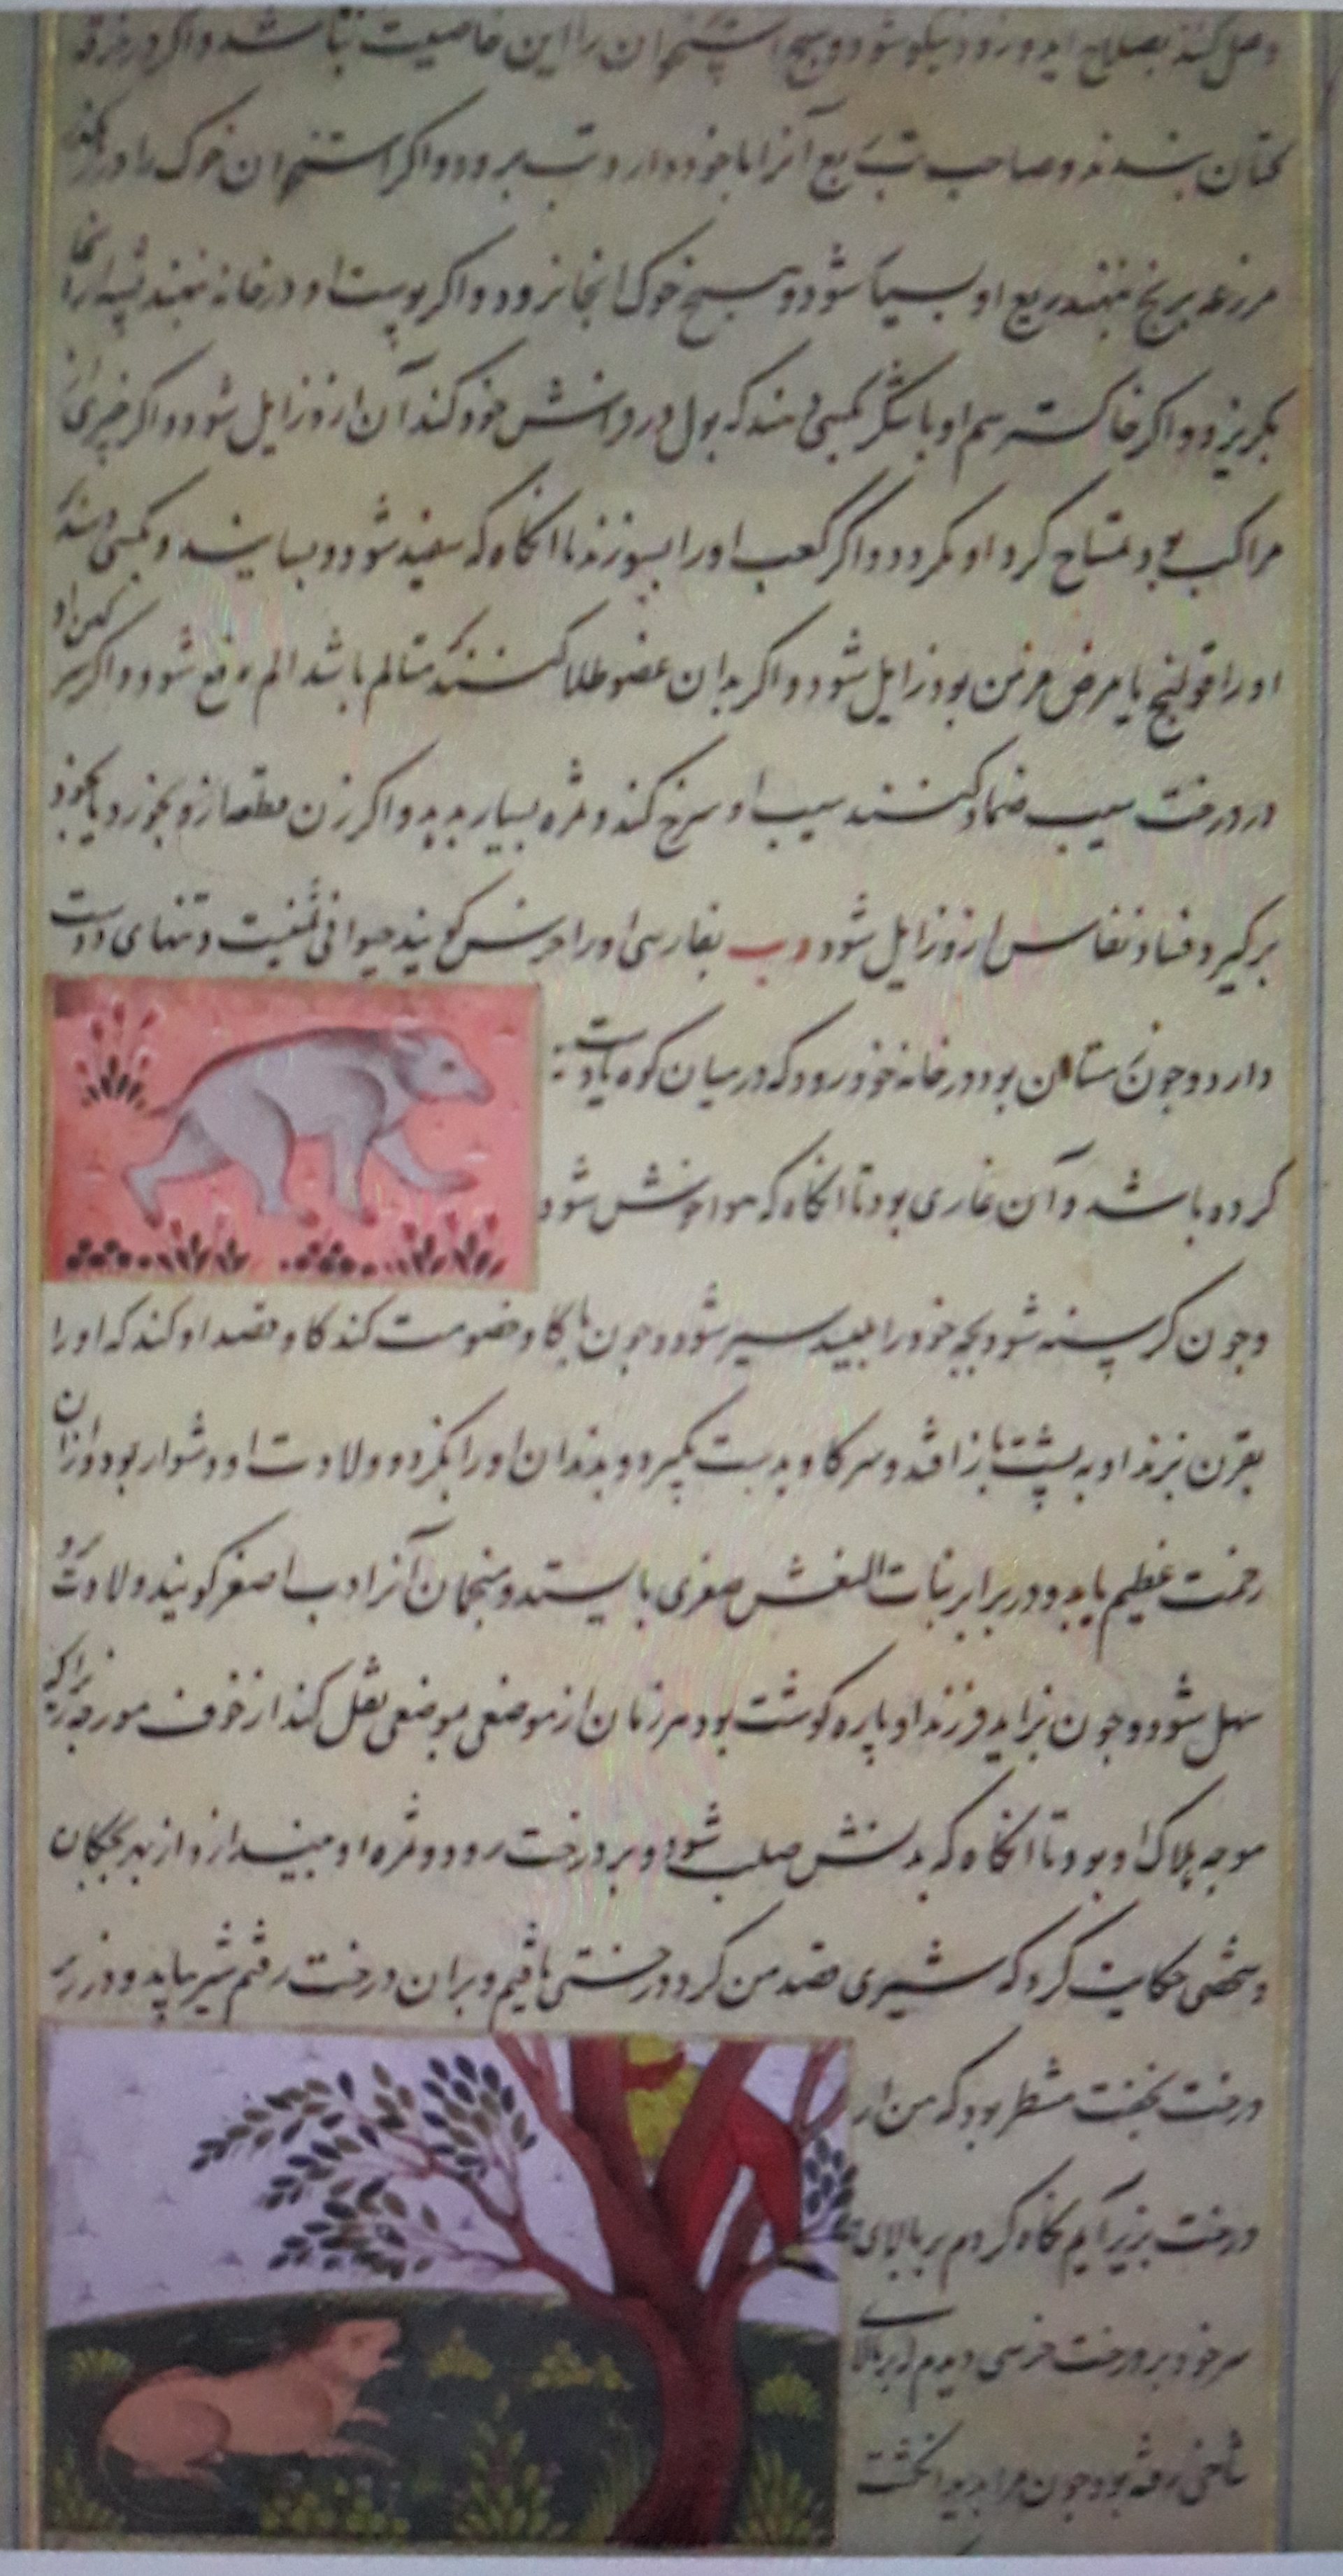 وصل کنند بصلاح آید و زود نیکو شود و هیچ استخوان را این خاصیت نباشد و اگر در خرقه
کتان بندند و صاحب تب ربع آنرا با خود دارد تب برود و اگر استخوان خوک را در
مزرعه برنج بنهند ریع او بسیار شود و هیچ خوک آنجا نرود و اگر پوست او در خانه بنهند پشه ازانجا
بکریزد و اگر خاکستر سم او با شکر بکسی دهند که بول در فراش خود کند آن ازو زایل شود و اگر چیزی از
کرد او نکردد و اگر کعب او را بسوزند تا انکاه که سفید شود و بسایند و بکسی دهند که
او را قولنج یا مرض مزمن بود زایل شود و اگر بدان عضو طلا کنند که متالم باشد الم دفع شود و اگر
در درخت سیب ضماد کنند سیب او سرخ کند و ثمره بسیار بدهد و اگر زن ازو بخورد یا بخود
برکیرد فساد نفاس ازو زایل شود دب بفارسی او را خرس کویند حیوانی است و تنهای دوست
دارد و جون زمستان بود در خانه خود رود که در میان کوه
کرده باشد و آن غاری بود تا انکاه که هوا خوش شود
و جون کرسنه شود بچه خود را ببیند سیر شود و جون با کاو خصومت کند کاو قصد او کند که او را
بقرن بزند او به پشت باز افتد و سر کاو بدست بکیرد و بدندان او را بکزد و ولادت او دشوار بود و ازان
زحمت عظیم یابد و در برابر بنات النعش صغری بایستد و منجمان آنرا دب اصغر کویند ولادت برو
سهل شود و جون بزاید فرزند او پاره کوشت بود هر زمان از موضعی بموضعی نقل کند از خوف مورچه زیراکه
مورچه هلاک او بود تا انکاه که بدنش صلب شود و بر درخت رود و ثمره او میندازد از بهر بچکان
و شخصی حکایت کرد که شیری قصد من کرد درختی یافتم و بران درخت رفتم شیر بیامد و در زیر
درخت بخفت منتظر بود که من از
درخت بزیر آیم نکاه کردم بر بالای
سر خود بر درخت خرسی دیدم که بر بالای
شاخی رفته بود جون مرا بدید انکشت